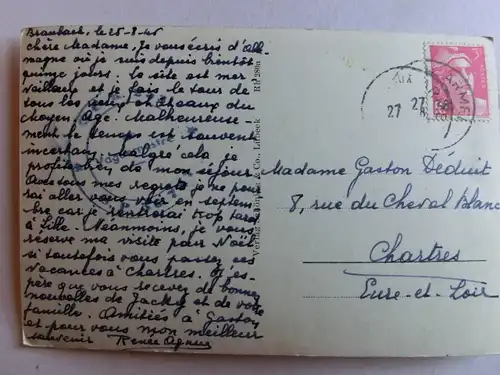 Braubach, le 25-8-46
Chère Madame, Je vous écris d'Alle
magne où je suis depuis bientôt
quinze jours. Le site est mer
veilleux et je fais le tour de
tous les vieux châteaux du
Moyen Age. Malheureuse-
ment le temps est souvent
incertain, malgré cela je
profite bien de mon séjour
Avec tous mes regrets je ne pour
rai aller vous voir en septem
bre car je rentrerai trop tard
à Lille. Néanmoins, je vous
réserve ma visite pour Noël
si toutefois vous passez ces
vacances à Chartres. J'es-
père que vous recevez de bonnes
nouvelles de Jacky et de votre
famille. Amitiés à Gaston
et pour vous mon meilleur
souvenir Renée
Vaguemestre
Verlag Schöning & Co., Lübeck Rh 280a
27 27
Madame Gaston Déduit
8, rue du Cheval Blanc
Chartres
Eure-et-Loir